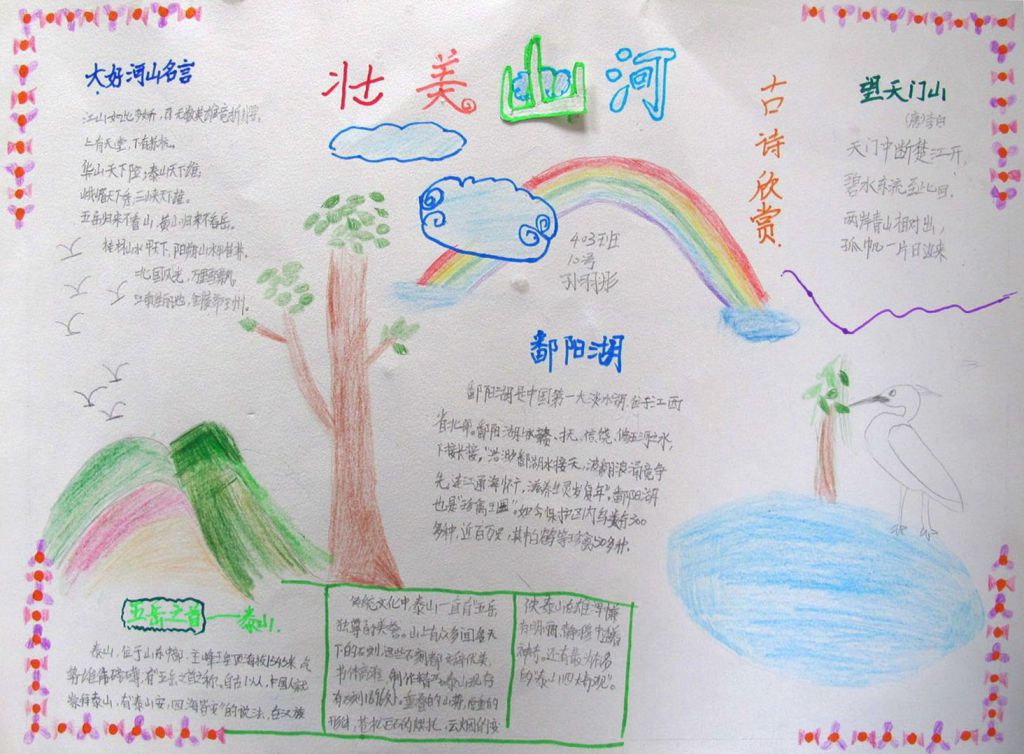 壮美山河
大好河山名言
江山如此多娇,引无数英雄竞折腰。
上有天堂,下有苏杭。
华山天下险,泰山天下雄。
峨嵋天下秀,三峡天下雄。
五岳归来不看山,黄山归来不看岳。
桂林山水甲天下,阳朔山水甲桂林。
北国风光,万里雪飘。
古诗欣赏.
望天门山
(唐)李白
天门中断楚江开,
碧水东流至此回.
两岸青山相对出,
孤帆一片日边来
403班
10号
孙羽彤
鄱阳湖
鄱阳湖是中国第一大淡水湖.位于江西
省北部。鄱阳湖
下接长接。"浩渺鄱湖水接天,波翻浪涌竞争
先
也是"珍禽王国"。如今保护区内鸟类有300
多种,近百万只,其中白鹤等珍禽50多种.
五岳之首→泰山.
泰山,位于山东中部,主峰玉皇顶海拔1545米,
有"五岳之首"之称。自古以人,中国人就
崇拜泰山,有"泰山安,四海皆安"的说法,在汉族
传统文化中泰山一直有五岳
独尊的美誉。山上有众多国各天
下的石刻,这些石刻都文辞优美,
书体高雅,制作精巧。泰山现存
有石刻1696处。重叠的山势,厚重的
形体,苍松巨石的烘托,云烟的变
使泰山在雄浑中兼
有明丽,静穆中透着
神奇。还有最为称名
的"泰山四大奇观"。